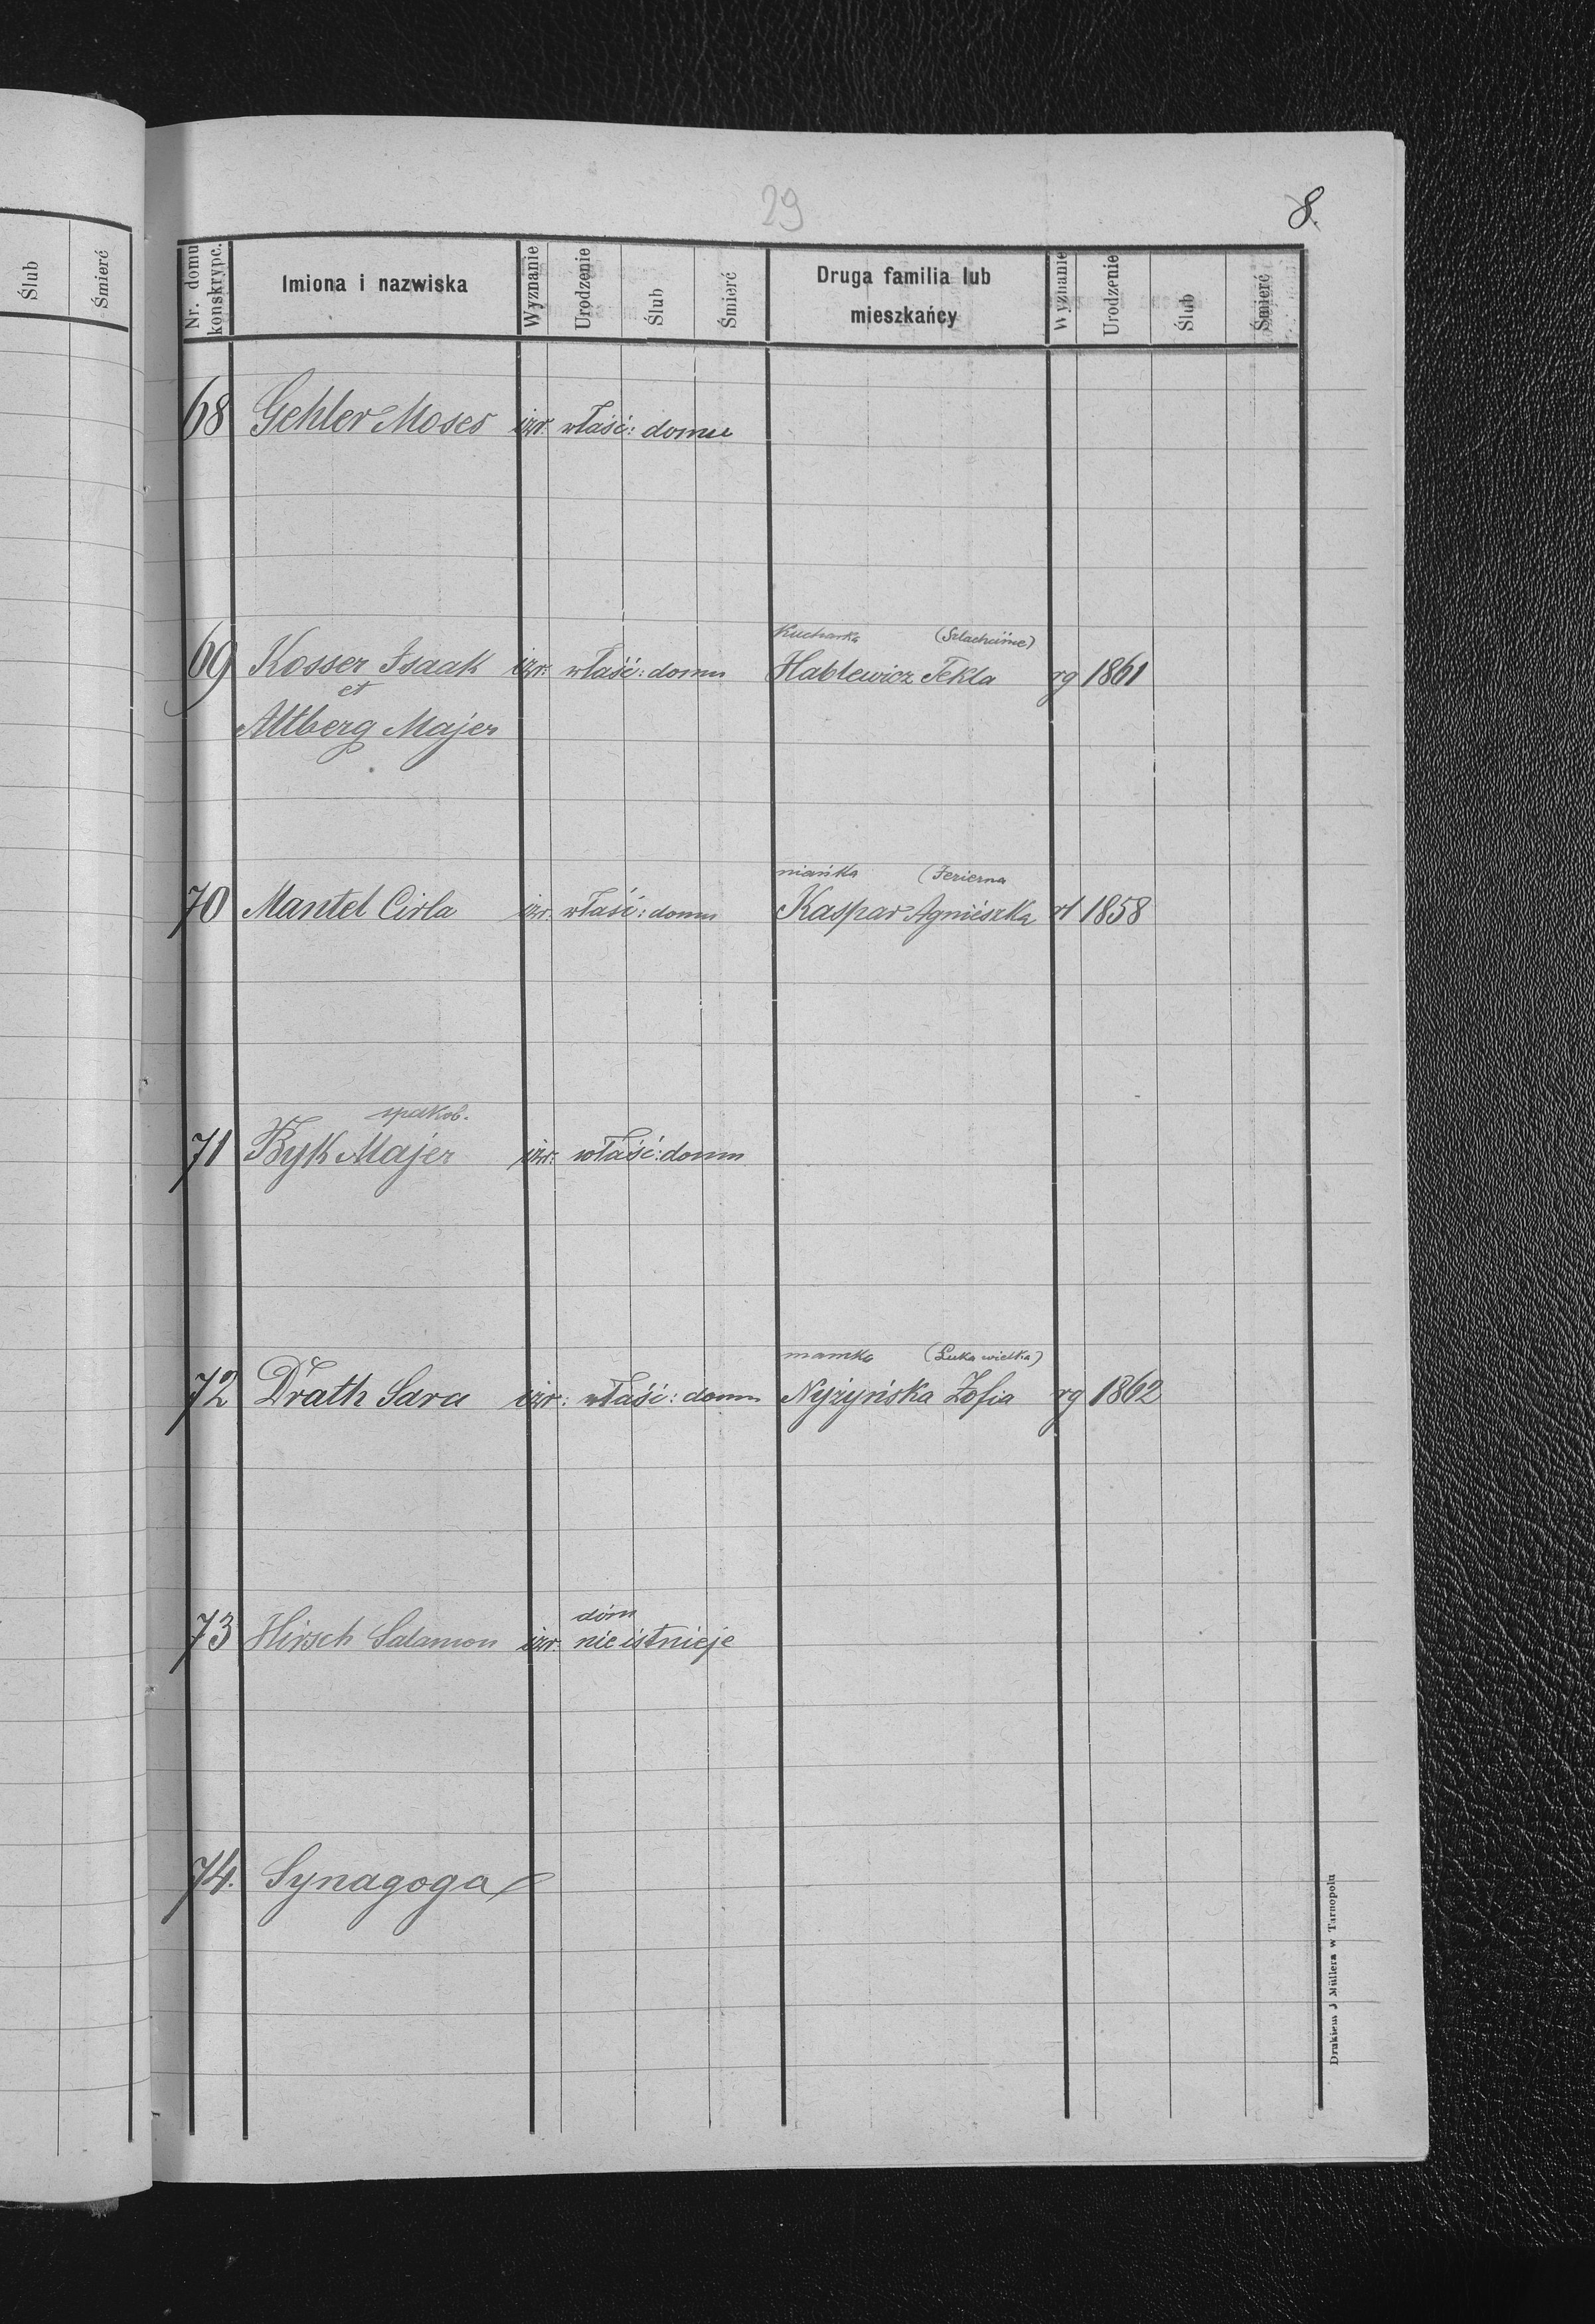 Ślub Śmierć
29
8.
Nr. domu konskrypc. Imiona i nazwiska Wyznanie Urodzenie Ślub Śmierć Druga familia lub mieszkańcy Wyznanie Urodzenie Ślub Śmierć
68 Gehler Moses izr. właść: domu
Kucharka (Szlachcińce)
69 Kosser Isaak izr: właść: domu Hablewicz Tekla rg 1861
et
Altberg Majer
niańka (Jezierna
70 Mantel Cirla izr. właść: domu Kaspar Agnieszka rł 1858
spakob.
71 Byk Majer izr: właść: domu
mamka (Łuka wielka)
72 Drath Sara izr: właść: domu Nyżyńska Zofia rg 1862
dóm
73 Hirsch Salamon izr. nie istnieje
74. Synagoga
Drukiem J Müllera w Tarnopolu